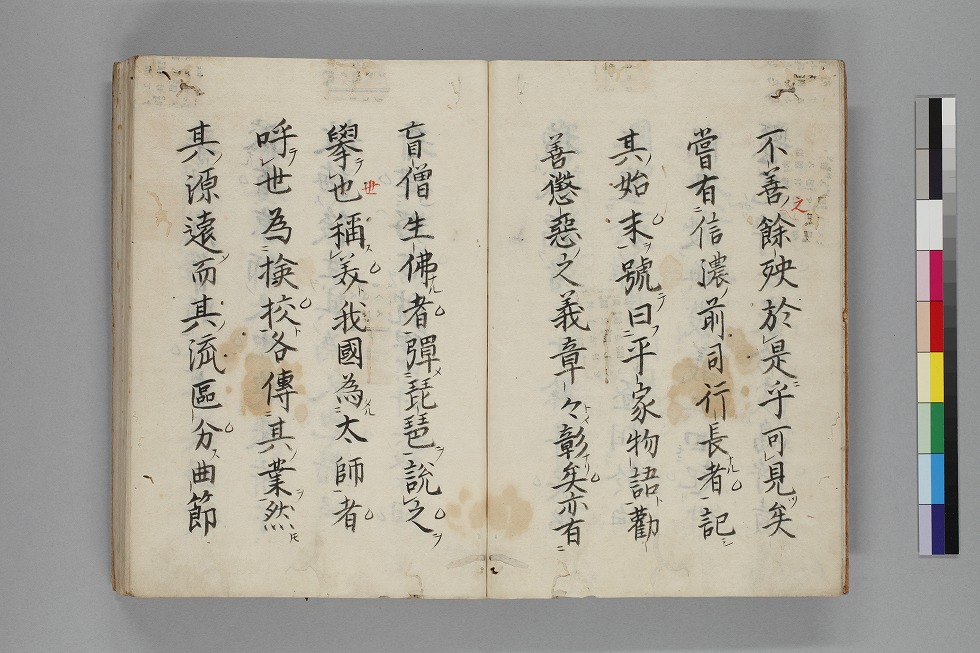 不善之餘殃於是乎可見矣
嘗有信濃前司行長者記
其始末號曰平家物語勸
善懲惡之義章々彰矣亦有
盲僧生佛者彈琵琶說之
擧世也稱美我國為太師者
呼世為撿挍各傳其業然
其源遠而其流區分曲節